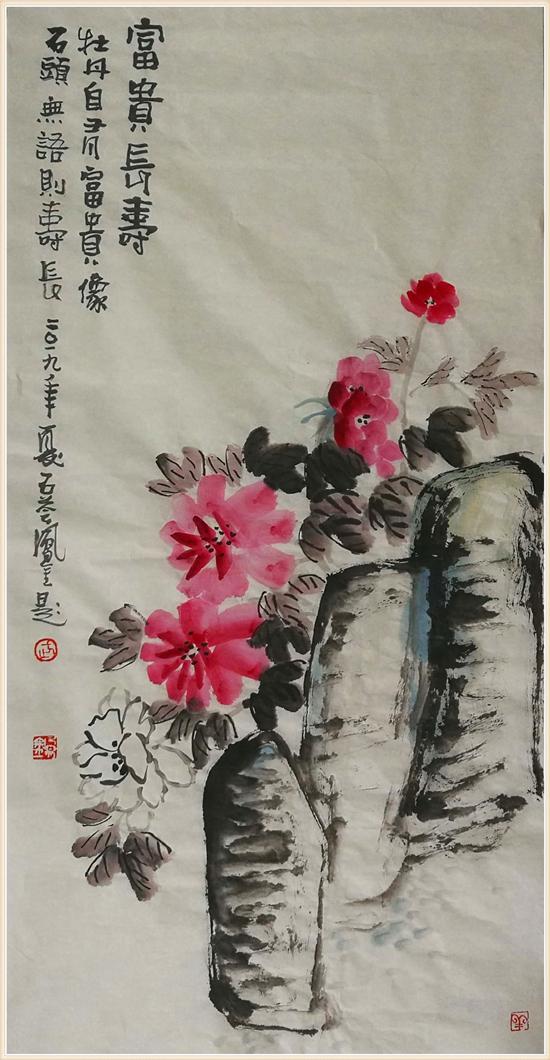 富貴長壽
牡丹自有富貴像
石頭無語則壽長 二〇一九年夏石 鳳 題